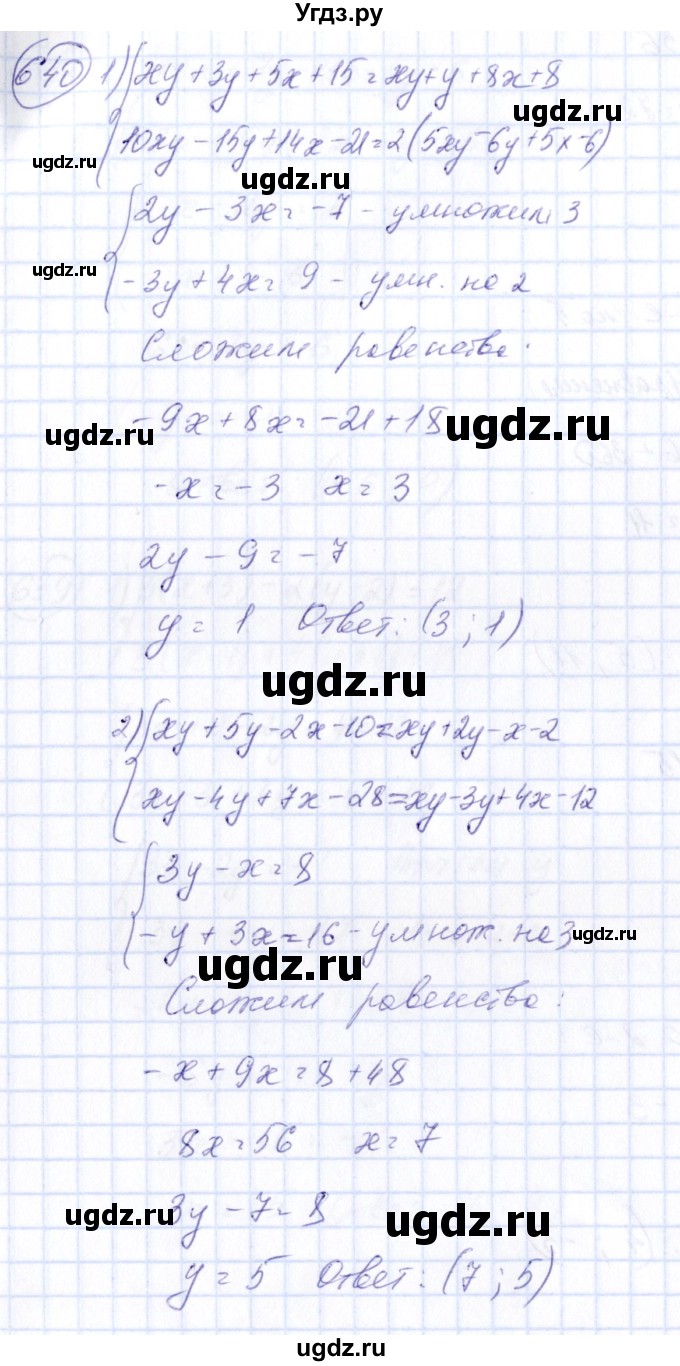 Угдз.ру
640 1) { xy + 3y + 5x + 15 = xy + y + 8x + 8
ugdz.ru
10xy - 15y + 14x - 21 = 2 (5xy - 6y + 5x - 6)
ugdz.ru
ugdz.ru
{ 2y - 3x = -7 - умножим 3
ugdz.ru
-3y + 4x = 9 - умн. на 2
Сложим равенства.
-9x + 8x = -21 + 18
ugdz.ru
ugdz.ru
-x = -3 x = 3
2y - 9 = -7
y = 1 Ответ: (3 ; 1)
ugdz.ru
2) { xy + 5y - 2x - 10 = xy + 2y - x - 2
xy - 4y + 7x - 28 = xy - 3y + 4x - 12
{ 3y - x = 8
-y + 3x = 16 - умнож. на 3
ugdz.ru
ugdz.ru
Сложим равенства:
-x + 9x = 8 + 48
8x = 56 x = 7
3y - 7 = 8
ugdz.ru
ugdz.ru
y = 5 Ответ: (7 ; 5)
ugdz.ru